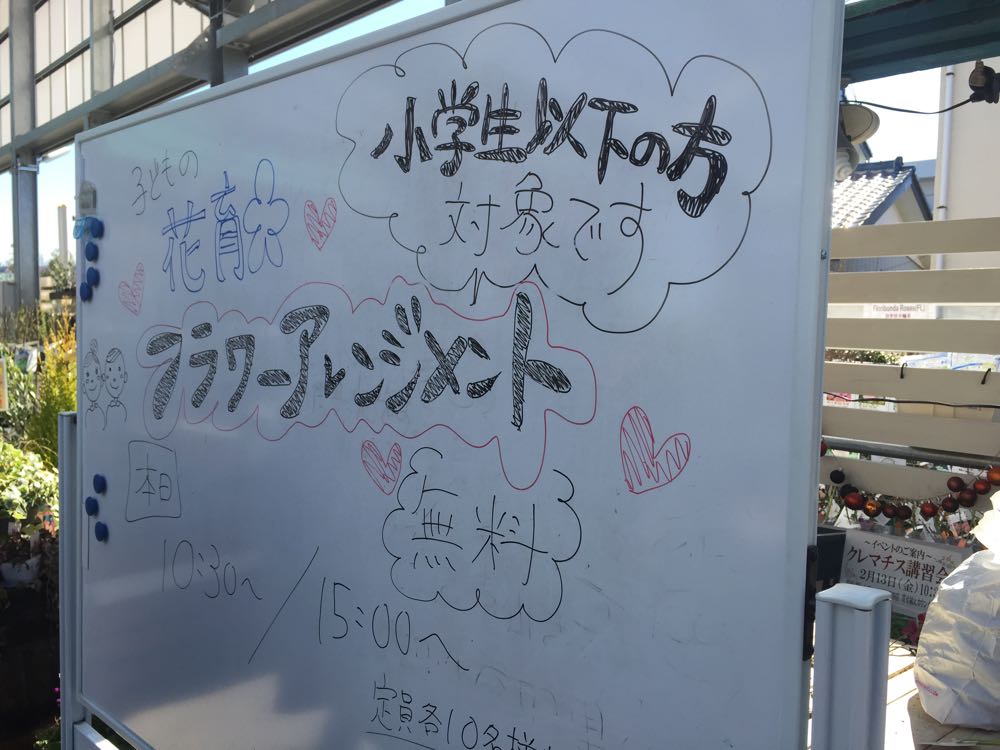 小学生以下の方
対象です
子どもの
花育
フラワーアレンジメント
本日
無料
10:30〜 / 15:00〜
定員各10名様
Floribunda Roses(FL)
〜イベントのご案内〜
クレマチス講習会
2月13日(金)10: